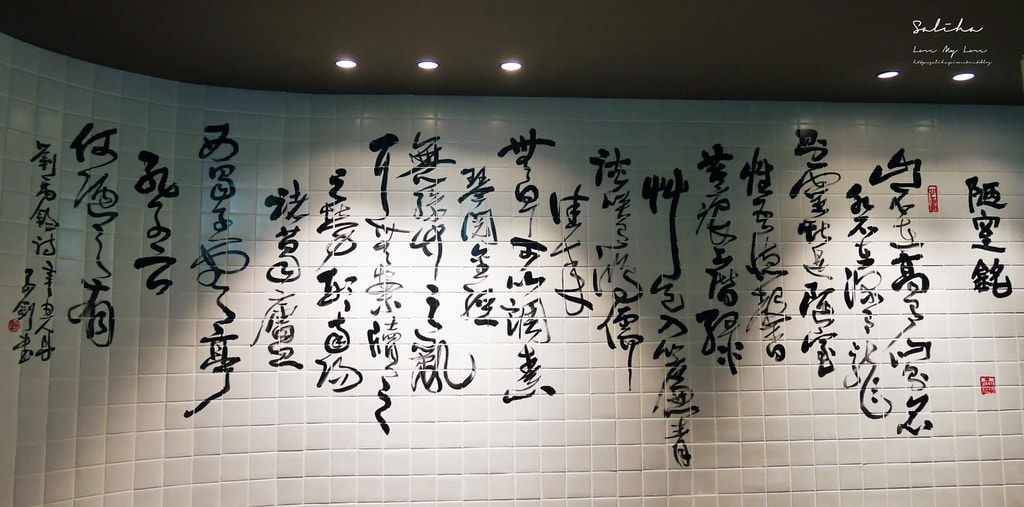 陋室銘
山不在高有仙則名
水不在深有龍
則靈斯是陋室
惟吾德馨
苔痕上階綠
艸色入簾青
談笑有鴻儒
往來
可以調素
琴閱金經
無絲竹之亂
耳無案牘之
之勞形南陽
諸葛廬
西蜀子雲亭
孔子云
何陋之有
劉禹錫詩
Saliha
Love My Love